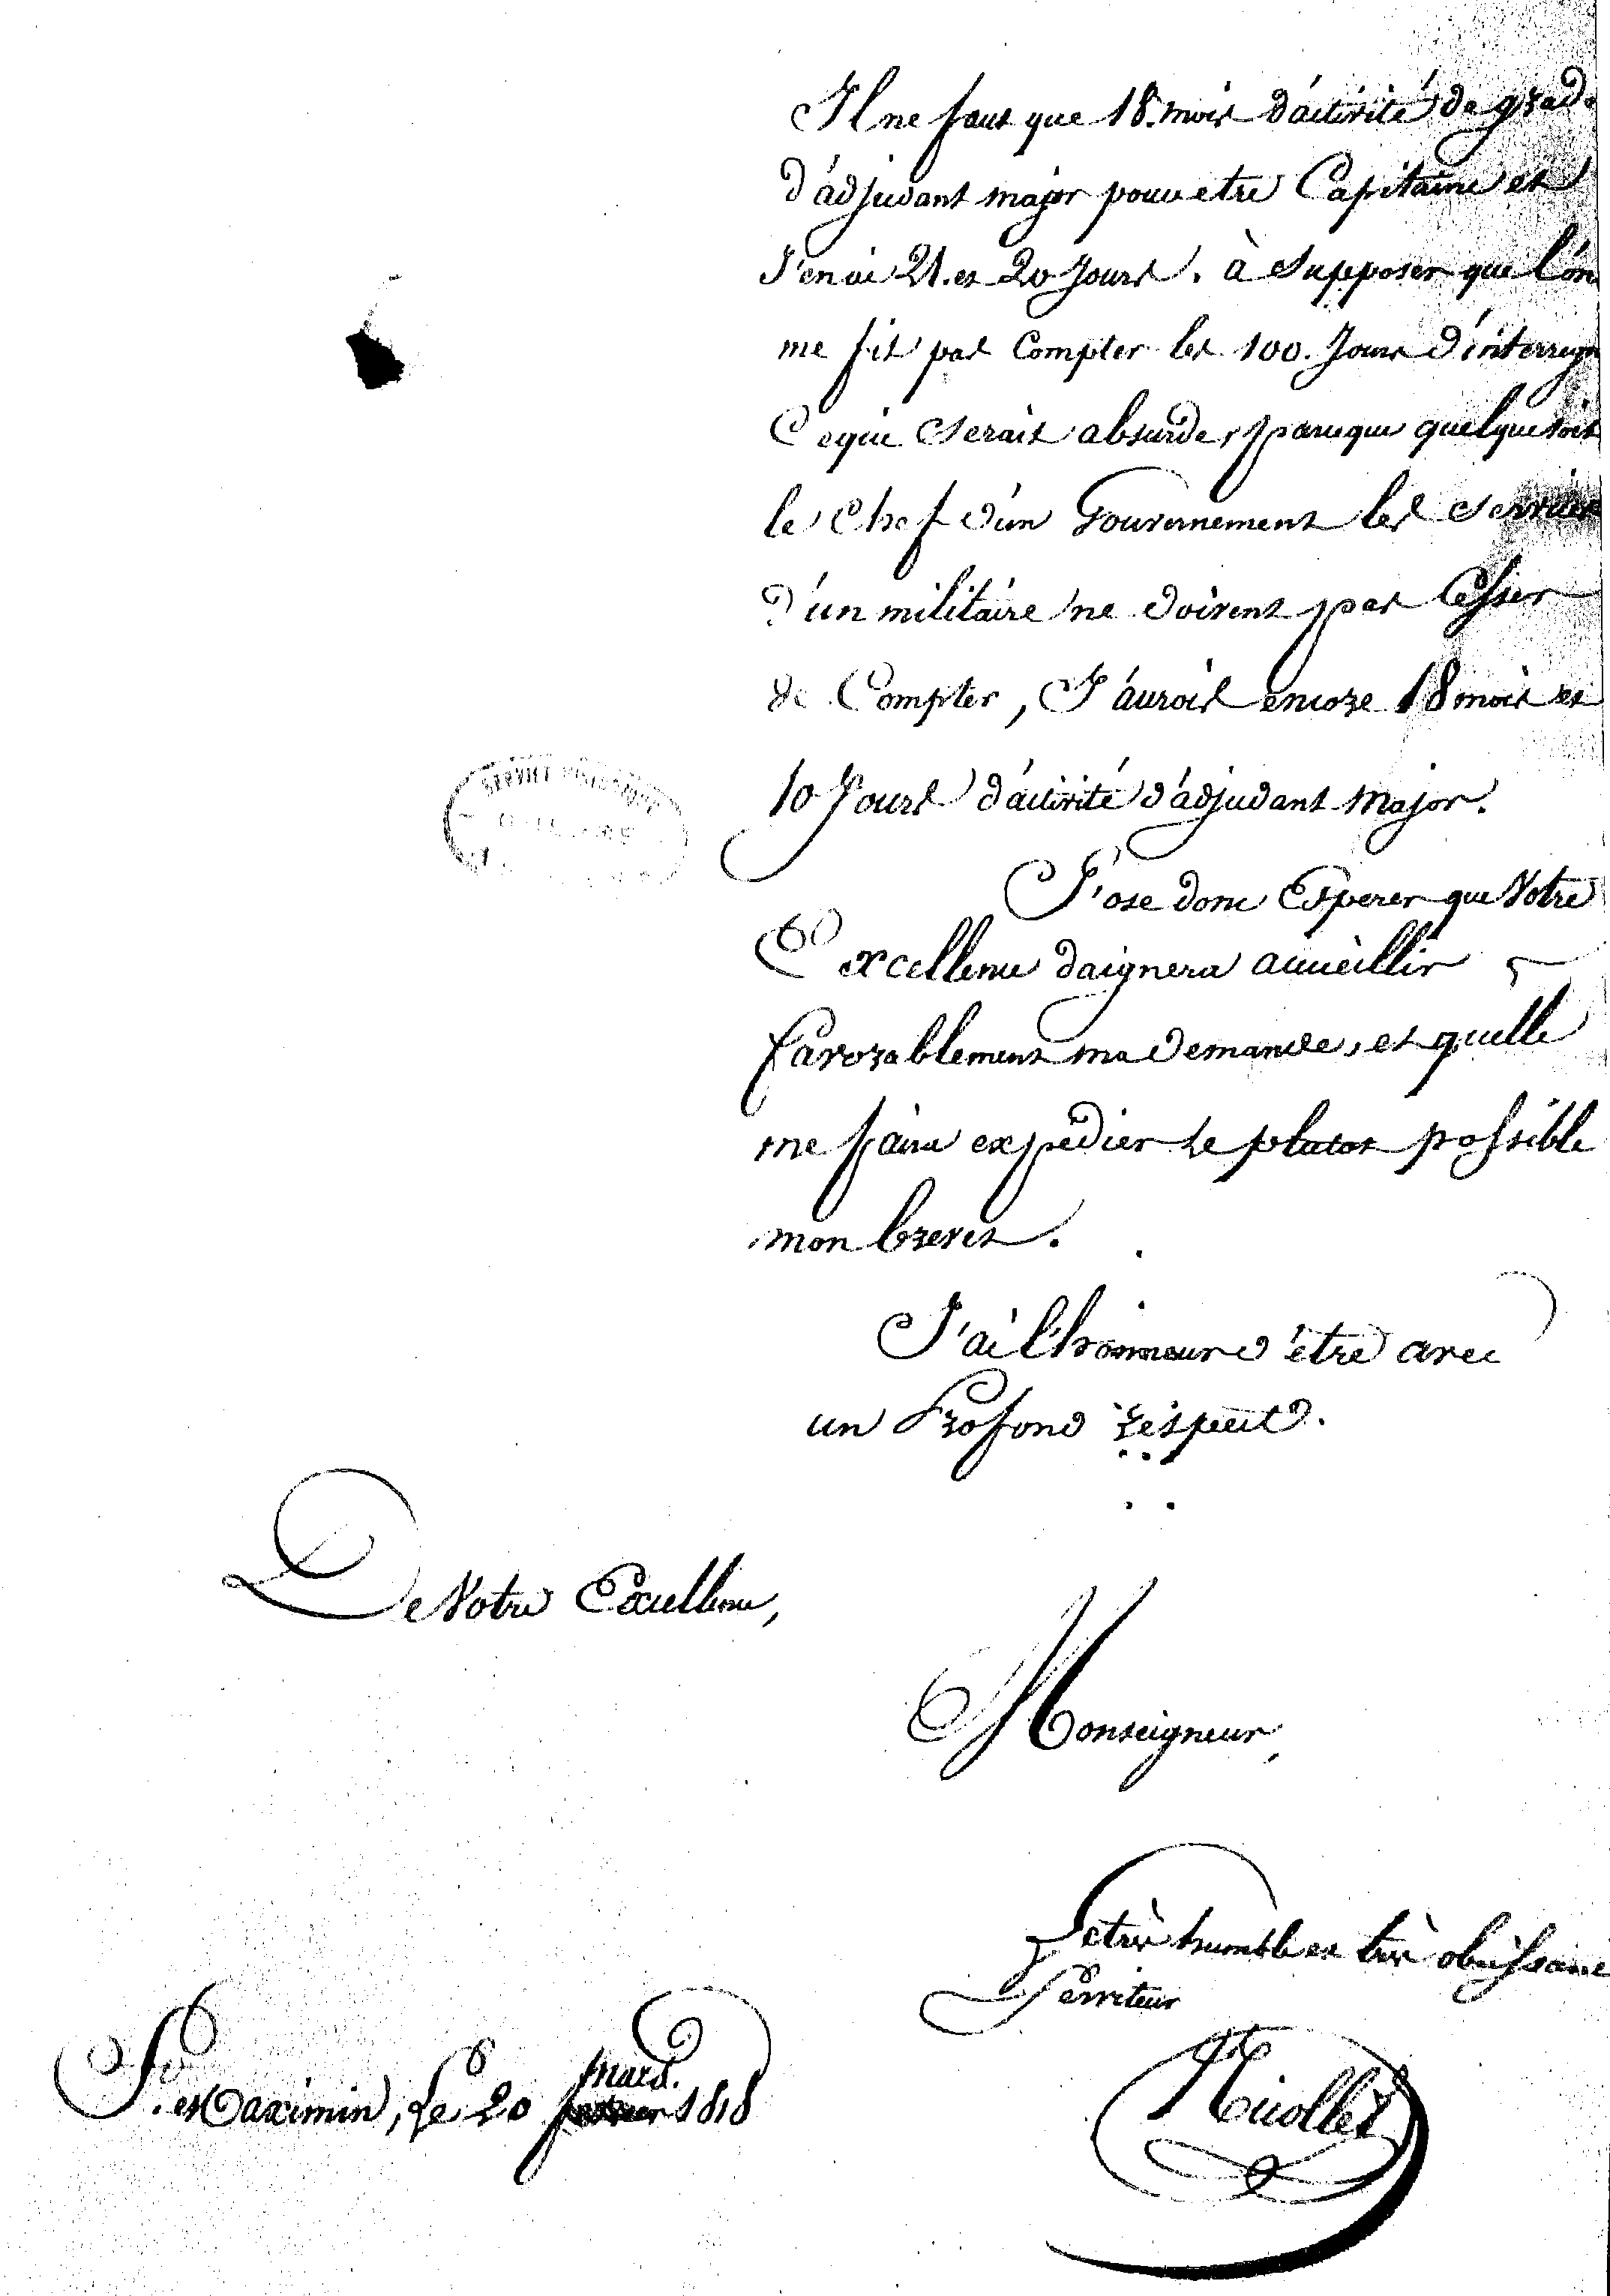 Il ne faut que 18. mois d'activité de grade
d'adjudant major pour etre Capitaine et
J'en ai 21. et 20 Jours. à Supposer que l'on
me fit pas Compter les 100. Jours d'interregne
Ce qui Serait absurde, parceque quelque soit
le Chef d'un Gouvernement les Services
d'un militaire ne doivent pas Cesser
de Compter, J'aurois encore 18 mois et
10 Jours d'activité d'adjudant Major.
J'ose donc Esperer que Votre
Excellence daignera accueillir
favorablement ma demande, et quelle
me faira expédier le plutot possible
mon brevet.
J'ai l'honneur d'être avec
un Profond respect.
De Votre Excellence,
Monseigneur,
Le très humble et très obeissant
Serviteur
mars.
St Maximin, Le 20 fevrier 1818
Nicollet